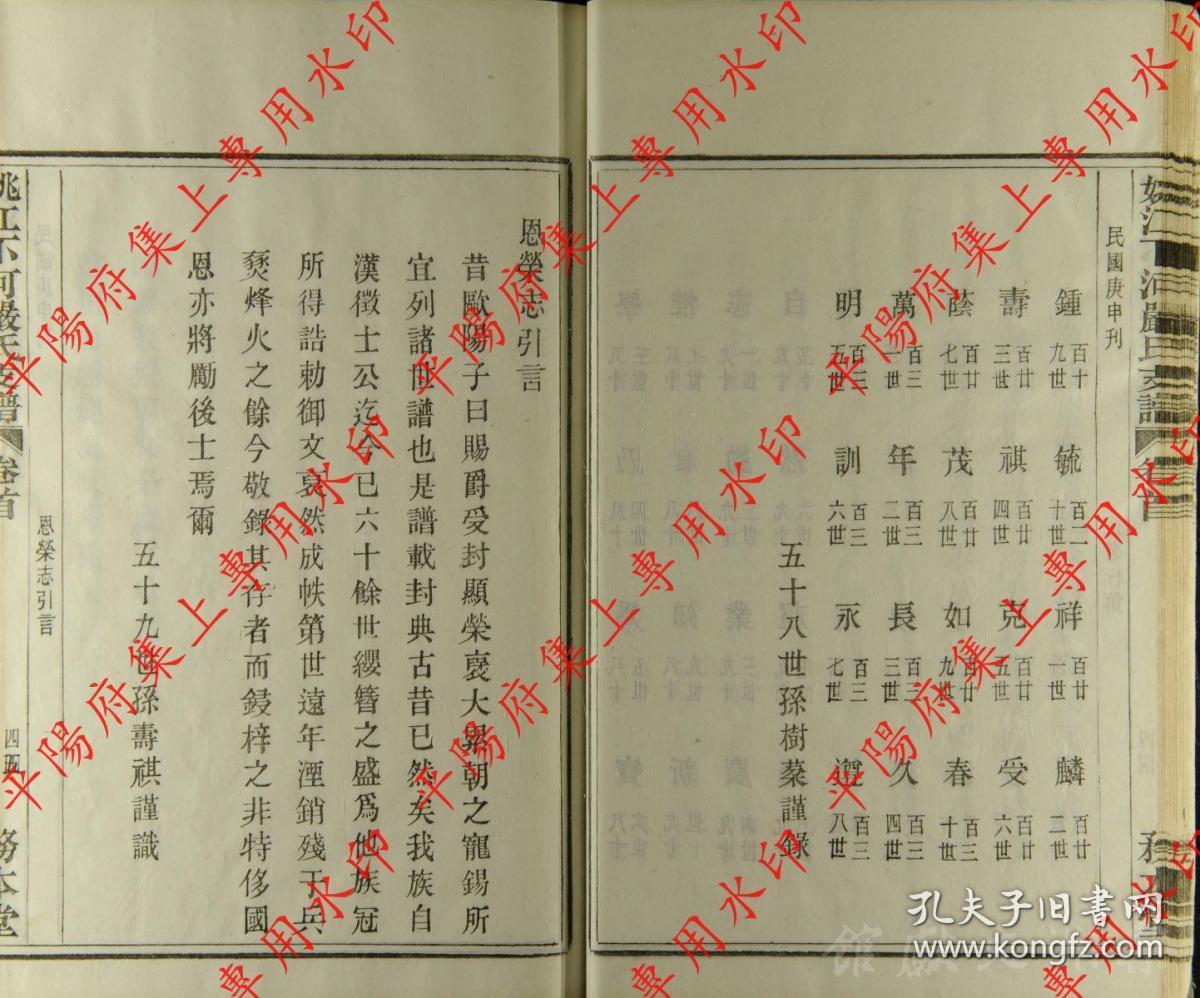 民國庚申刊
鍾 百十九世 毓 百二十世 祥 百廿一世 麟 百廿二世
壽 百廿三世 祺 百廿四世 克 百廿五世 受 百廿六世
蔭 百廿七世 茂 百廿八世 如 百廿九世 春 百三十世
萬 百三一世 年 百三二世 長 百三三世 久 百三四世
明 百三五世 訓 百三六世 永 百三七世 遵 百三八世
五十八世孫樹棻謹錄
恩榮志引言
昔歐陽子曰賜爵受封顯榮褒大異朝之寵錫所
宜列諸世譜也是譜載封典古昔已然矣我族自
漢徵士公迄今已六十餘世纓簪之盛爲他族冠
所得誥勅御文裒然成帙第世遠年湮銷殘于兵
燹烽火之餘今敬錄其存者而鋟梓之非特侈國
恩亦將勵後士焉爾
五十九世孫壽祺謹識
恩榮志引言
四五
姚江下河嚴氏支譜 卷首
務本堂
平陽府集上專用水印
孔夫子旧书网
www.kongfz.com